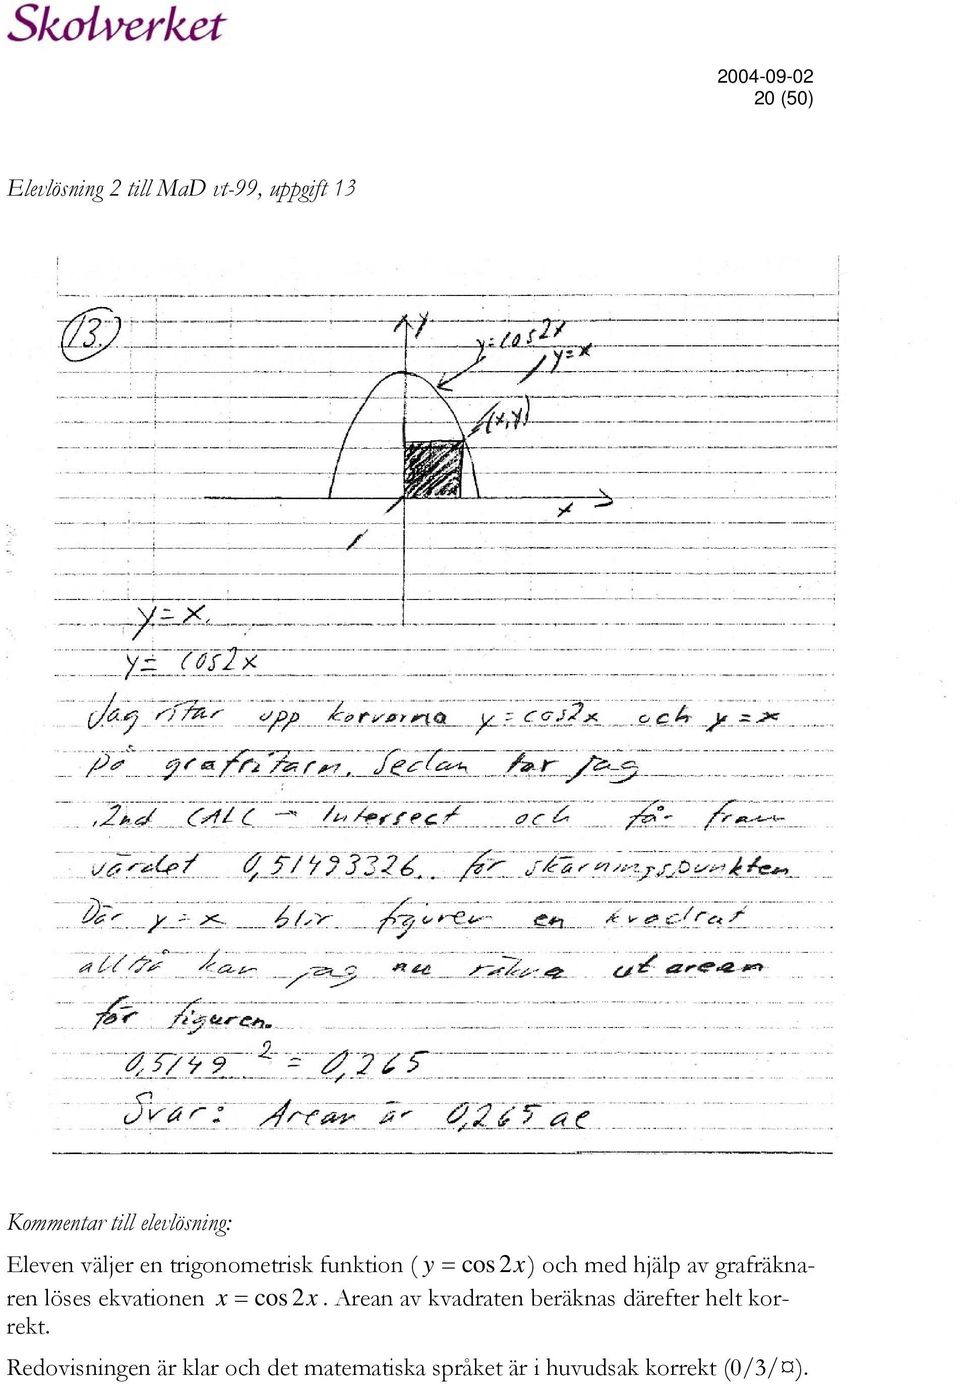 Skolverket
2004-09-02
20 (50)
Elevlösning 2 till MaD vt-99, uppgift 13
13.
y
y=cos2x
y=x
(x,y)
x
y=x.
y= cos2x
Jag ritar upp korvorna y=cos2x och y=x
på grafritarn. Sedan tar jag
2nd CALC → Intersect och får fram
värdet 0,51493326.. för skärningspunkten
Där y=x blir figuren en kvadrat
alltså kan jag nu räkna ut arean
för figuren.
0,5149² = 0,265
Svar: Arean är 0,265 ae
Kommentar till elevlösning:
Eleven väljer en trigonometrisk funktion ( y = cos 2x ) och med hjälp av grafräkna-
ren löses ekvationen x = cos 2x . Arean av kvadraten beräknas därefter helt kor-
rekt.
Redovisningen är klar och det matematiska språket är i huvudsak korrekt (0/3/¤).